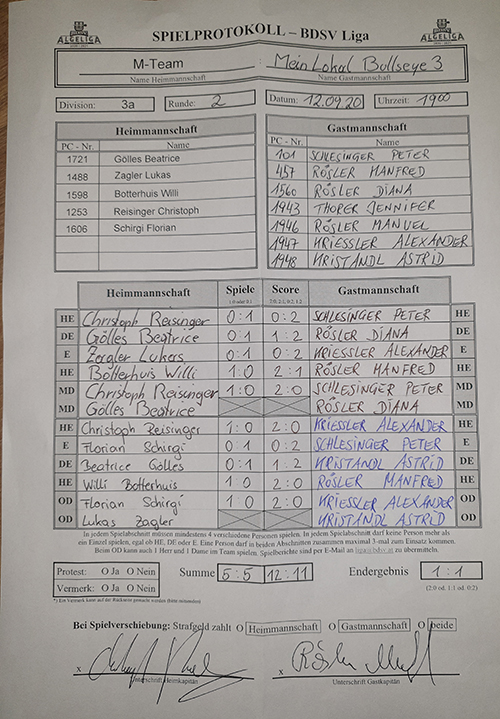 ALGELIGA SPIELPROTOKOLL – BDSV Liga ALGELIGA
M-Team : Mein Lokal Bullseye 3
Name Heimmannschaft Name Gastmannschaft
Division: 3a Runde: 2 Datum: 12.09.20 Uhrzeit: 1900
Heimmannschaft Gastmannschaft
PC - Nr. Name PC - Nr. Name
1721 Gölles Beatrice 101 SCHLESINGER PETER
1488 Zagler Lukas 457 RÖSLER MANFRED
1598 Botterhuis Willi 1560 RÖSLER DIANA
1253 Reisinger Christoph 1943 THORER JENNIFER
1606 Schirgi Florian 1946 RÖSLER MANUEL
1947 KRIESSLER ALEXANDER
1948 KRISTANDL ASTRID
Heimmannschaft Spiele Score Gastmannschaft
1:0 oder 0:1 2:0; 2:1; 0:2; 1:2
HE Christoph Reisinger 0:1 0:2 SCHLESINGER PETER HE
DE Gölles Beatrice 0:1 1:2 RÖSLER DIANA DE
E Zagler Lukas 0:1 0:2 KRIESSLER ALEXANDER E
HE Botterhuis Willi 1:0 2:1 RÖSLER MANFRED HE
MD Christoph Reisinger 1:0 2:0 SCHLESINGER PETER MD
MD Gölles Beatrice RÖSLER DIANA MD
HE Christoph Reisinger 1:0 2:0 KRIESSLER ALEXANDER HE
E Florian Schirgi 0:1 0:2 SCHLESINGER PETER E
DE Beatrice Gölles 0:1 1:2 KRISTANDL ASTRID DE
HE Willi Botterhuis 1:0 2:0 RÖSLER MANFRED HE
OD Florian Schirgi 1:0 2:0 KRIESSLER ALEXANDER OD
OD Lukas Zagler KRISTANDL ASTRID OD
In jedem Spielabschnitt müssen mindestens 4 verschiedene Personen spielen. In jedem Spielabschnitt darf keine Person mehr als
ein Einzel spielen, egal ob HE, DE oder E. Eine Person darf in beiden Abschnitten zusammen maximal 3-mal zum Einsatz kommen.
Beim OD kann auch 1 Herr und 1 Dame im Team spielen. Spielberichte sind per E-Mail an liga@bdsv.at zu übermitteln.
Protest: O Ja O Nein Summe 5:5 12:11 Endergebnis 1:1
Vermerk: O Ja O Nein (2:0 od. 1:1 od. 0:2)
*) Ein Vermerk kann auf der Rückseite gemacht werden (bitte mitmailen)
Bei Spielverschiebung: Strafgeld zahlt O Heimmannschaft O Gastmannschaft O beide
x x Rösler
Unterschrift Heimkapitän Unterschrift Gastkapitän